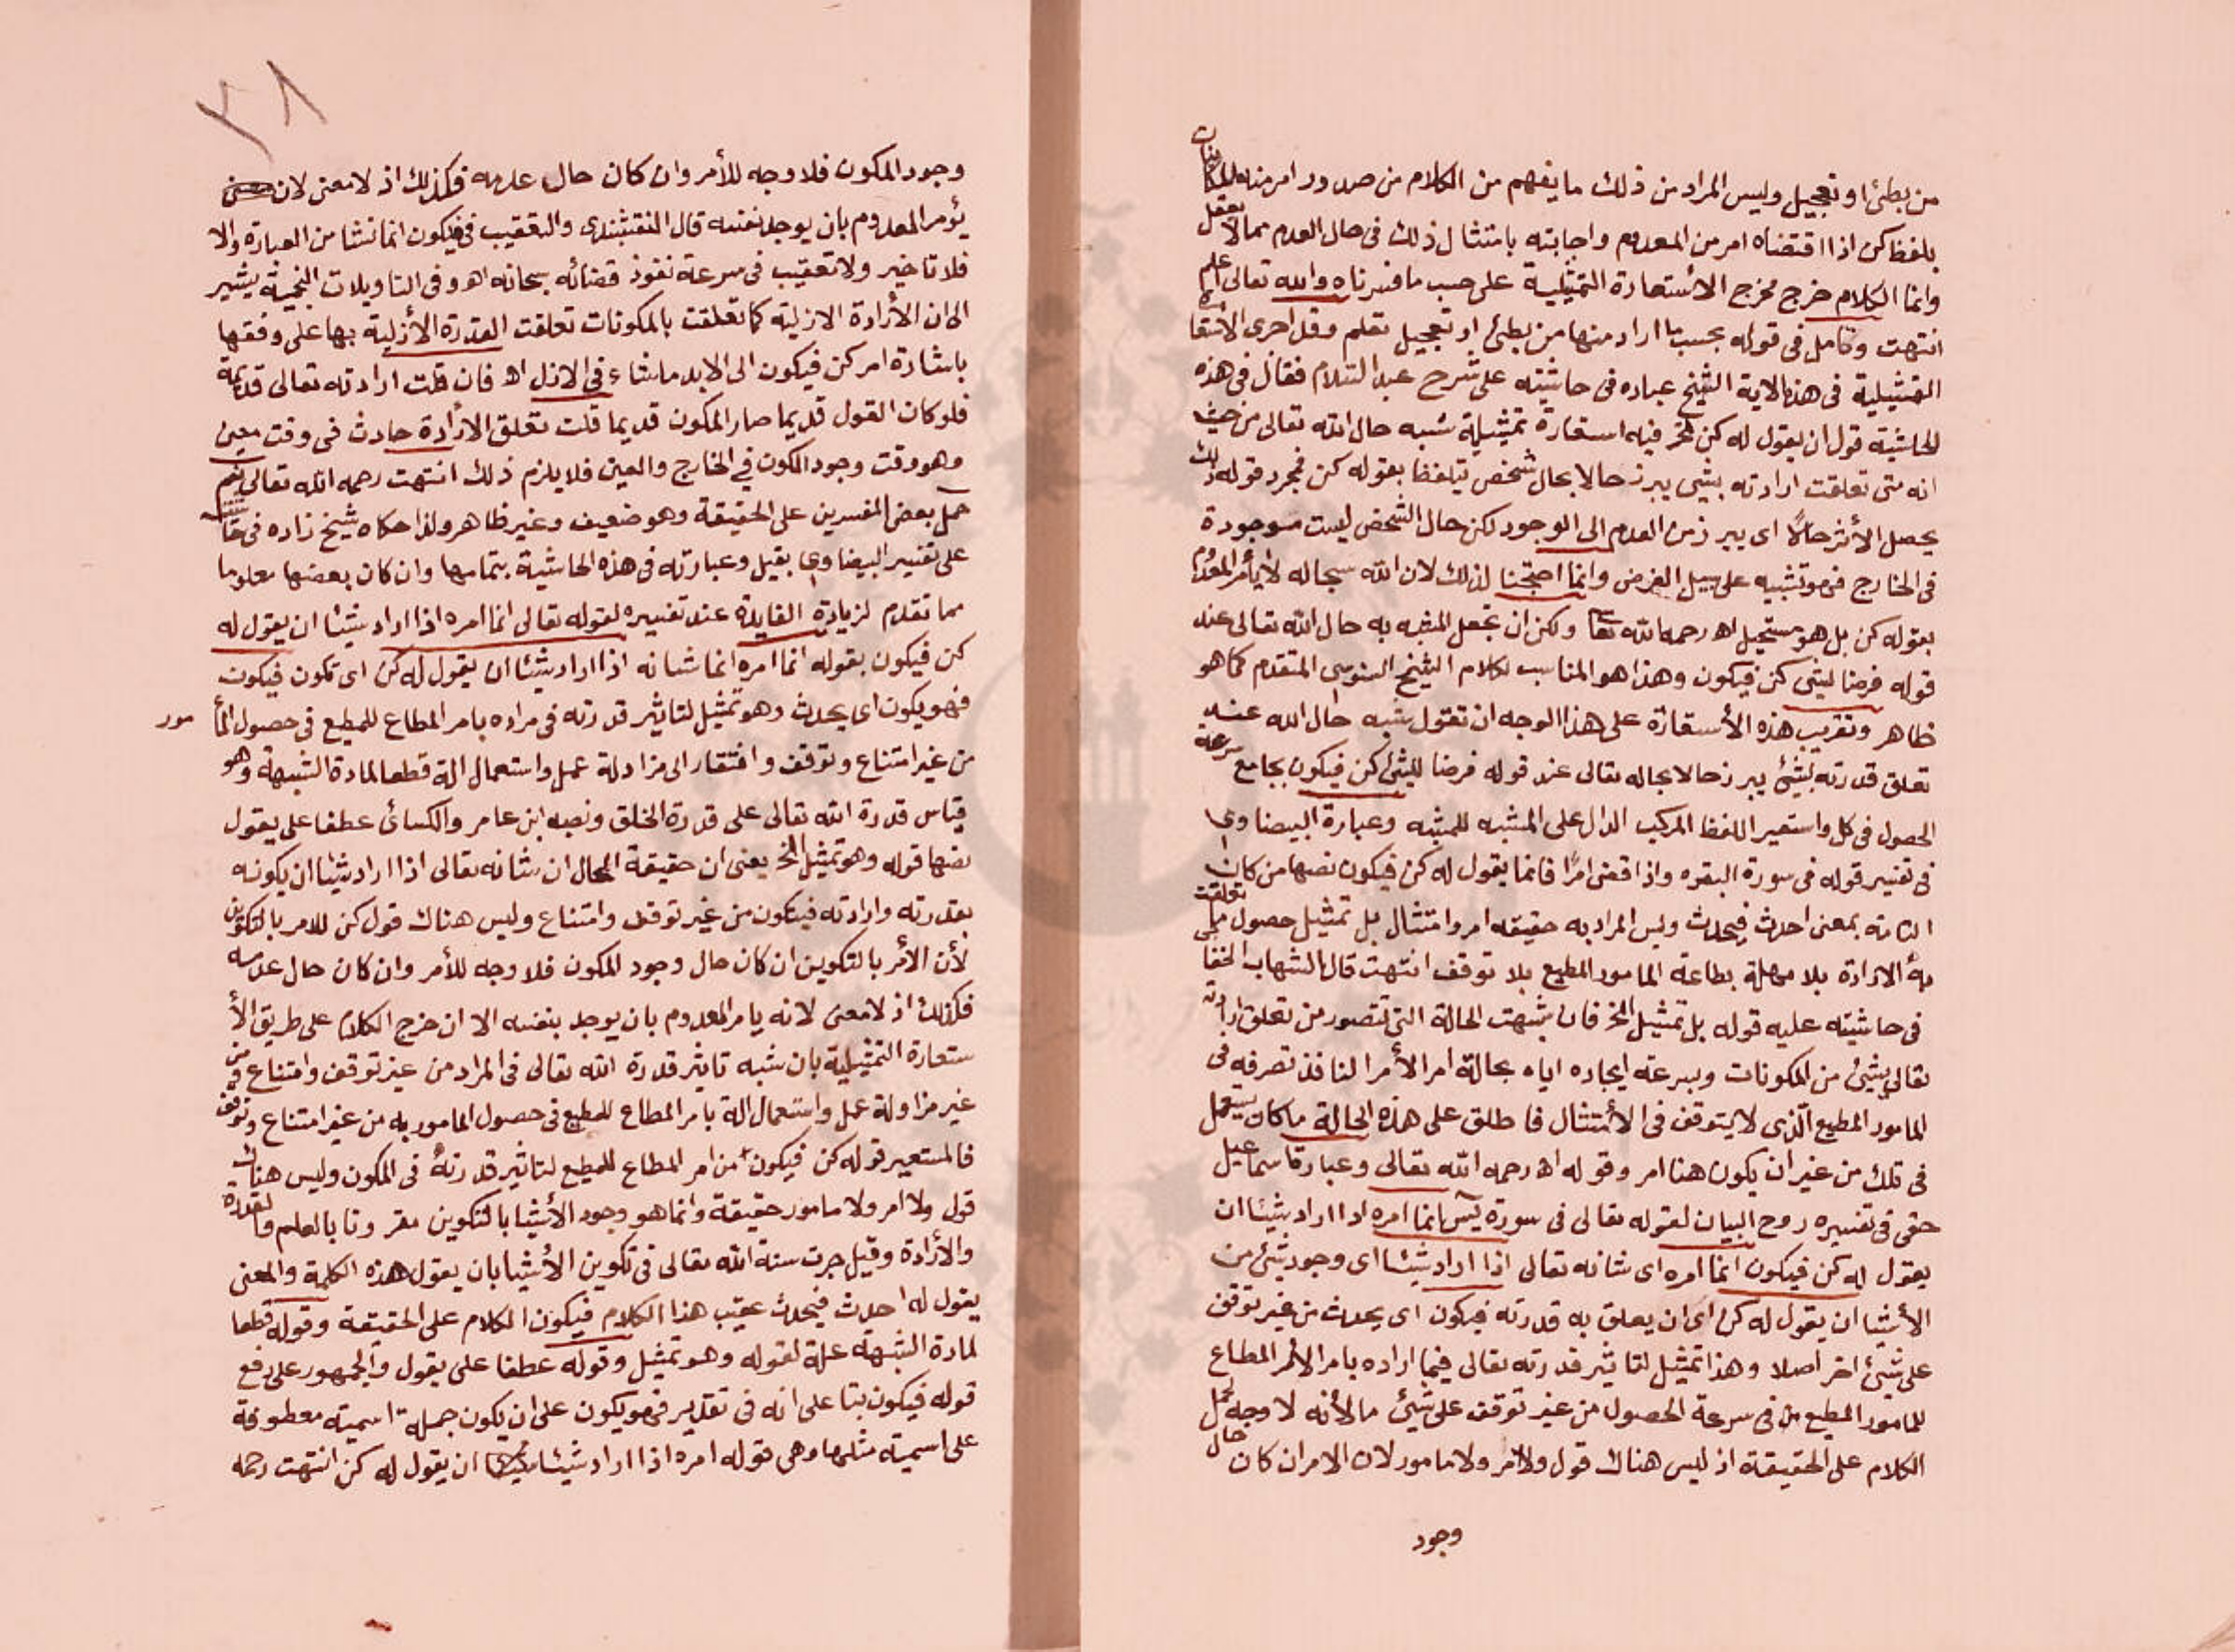 من بطئ او تعجيل وليس المراد من ذلك ما يفهم من الكلام من صدور امر منه للمكانات
بلفظ كن اذا اقتضاه امر من المعدوم واجابته بامتثال ذلك فى حال العدم مما لا يعقل
وانما الكلام خرج مخرج الاستعارة التمثيلية على حسب ما فسرناه والله تعالى اعلم
انتهت وتامل فى قوله بحسب ما اراد منها من بطئ او تعجيل تعلم وقد اجرى الاستعارة
التمثيلية فى هذه الاية الشيخ عباده فى حاشيته على شرح عبد السلام فقال فى هذه
الحاشية قول ان يقول له كن الخ فيه استعارة تمثيلية شبه حال الله تعالى من حيث
انه متى تعلقت ارادته بشيى يبرز حالا بحال شخص يتلفظ بقوله كن فمجرد قوله ذلك
يحصل الأثر حالاً اى يبرز من العدم الى الوجود لكن حال الشخص ليست موجودة
فى الخارج فهو تشبيه على سبيل الفرض وانما احتجنا لذلك لان الله سبحاله لا يأمر المعدُم
بقوله كن بل هو مستحيل اه رحمه الله تعا ولكن ان تجعل المشبه به حال الله تعالى عند
قوله فرضا ليثى كن فيكون وهذا هو المناسب لكلام الشيخ السنوسى المتقدم كما هو
ظاهر وتقريب هذه الأستعارة على هذا الوجه ان تقول شبه حال الله عند
تعلق قدرته بشيئ يبرز حالا بحاله تعالى عند قوله فرضا لليثئ كن فيكون بجامع سرعة
الحصول فى كل واستعير اللفظ المركب الدال على المشبه للمشبه وعبارة البيضاوى
فى تفسير قوله فى سورة البقره واذا قضى امرًا فانما يقول له كن فيكون نصها من كان
التامة بمعنى احدث فيحدث وليس المراد به حقيقه امر وامتثال بل تمثيل حصول ما تعلقت
به الارادة بلا مهلة بطاعة المامور المطيع بلا توقف انتهت قال الشهاب الخفا
فى حاشيته عليه قوله بل تمثيل الخ فان شبهت الحالة التى تتصور من تعلق ارادته
تعالى بشيئ من المكونات وبسرعة ايجاده اياه بحالة امر الأمر النافذ تصرفه فى
المامور المطيع الّذى لا يتوقف فى الأمتثال فاطلق على هذه الحالة ما كان يستعمل
فى تلك من غير ان يكون هنا امر وقوله اه رحمه الله تعالى وعبارة اسماعيل
حقى فى تفسيره روح البيان لقوله تعالى فى سورة يس انما امره اذا اراد شيئا ان
يقول له كن فيكون انما امره اى شانه تعالى اذا اراد شيئا اى وجود شئ من
الأشيا ان يقول له كن اى ان يعلق به قدرته فيكون اى يحدث من غير توقف
على شيئ اخر اصلا وهذا تمثيل لتاثير قدرته تعالى فيما اراده بامر الأمر المطاع
للمامور المطيع فى سرعة الحصول من غير توقف على شيئ ما لأنه لا وجه لحمل
الكلام على الحقيقة اذ ليس هناك قول ولا امر ولا مامور لان الامر ان كان حال
وجود
٣٨
وجود المكون فلا وجه للأمر وان كان حال عدمه فكذلك اذ لا معنى لان
يؤمر المعدوم بان يوجد نفسه قال النقشبندى والتعقيب فى فيكون انما نشا من العبارة والا
فلا تاخير ولا تعقيب فى سرعة نفوذ قضائه سبحانه اه وفى التاويلات النجمية يشير
الى ان الأرادة الازلية كما تعلقت بالمكونات تعلقت القدرة الأزلية بها على وفقها
باشارة امر كن فيكون الى الابد ما شاء فى الازل اه فان قلت ارادته تعالى قديمة
فلو كان القول قديما صار المكون قديما قلت تعلق الارادة حادث فى وقت معين
وهو وقت وجود المكون فى الخارج والعين فلا يلزم ذلك انتهت رحمه الله تعالى نعم
حمل بعض المفسرين على الحقيقة وهو ضعيف وغير ظاهر ولذا حكاه شيخ زاده فى حاشيته
على تفسير البيضاوى بقيل وعبارته فى هذه الحاشية بتمامها وان كان بعضها معلوما
مما تقدم لزيادة الفايدة عند تفسيره لقوله تعالى انما امره اذا اراد شيئا ان يقول له
كن فيكون بقوله انما امره انما شانه اذا اراد شيئا ان يقول له كن اى تكون فيكون
فهو يكون اى يحدث وهو تمثيل لتاثير قدرته فى مراده بامر المطاع للمطيع فى حصول المأمور
من غير امتناع وتوقف وافتقار الى مزاولة عمل واستعمال الة قطعا لمادة الشبهة وهو
قياس قدرة الله تعالى على قدرة الخلق ونصبه ابن عامر والكسائى عطفا على يقول
نصها قوله وهو تمثيل الخ يعنى ان حقيقة الحال ان شانه تعالى اذا اراد شيئا ان يكونه
بقدرته وارادته فيتكون من غير توقف وامتناع وليس هناك قول كن للامر بالتكوين
لأن الأمر بالتكوين ان كان حال وجود المكون فلا وجه للأمر وان كان حال عدمه
فكذلك اذ لا معنى لانه يامر المعدوم بان يوجد بنفسه الا ان خرج الكلام على طريق الأ
ستعارة التمثيلية بان شبه تاثير قدرة الله تعالى فى المراد من غير توقف وامتناع ومن
غير مزاولة عمل واستعمال الة بامر المطاع للمطيع فى حصول المامور به من غير امتناع وتوقف
فالمستعير قوله كن فيكون من امر المطاع للمطيع لتاثير قدرته فى المكون وليس هناك
قول ولا امر ولا مامور حقيقة وانما هو وجود الأشيا بالتكوين مقرونا بالعلم والقدرة
والأرادة وقيل جرت سنة الله تعالى فى تكوين الأشيا بان يقول هذه الكلمة والمعنى
يقول له احدث فيحدث عقيب هذا الكلام فيكون الكلام على الحقيقة وقوله قطعا
لمادة الشبهة علة لقوله وهو تمثيل وقوله عطفا على يقول والجمهور على رفع
قوله فيكون بتا على انه فى تقدير فهو يكون على ان يكون جملة اسمية معطوفة
على اسمية مثلها وهى قوله امره اذا اراد شيئا ان يقول له كن انتهت رحمه